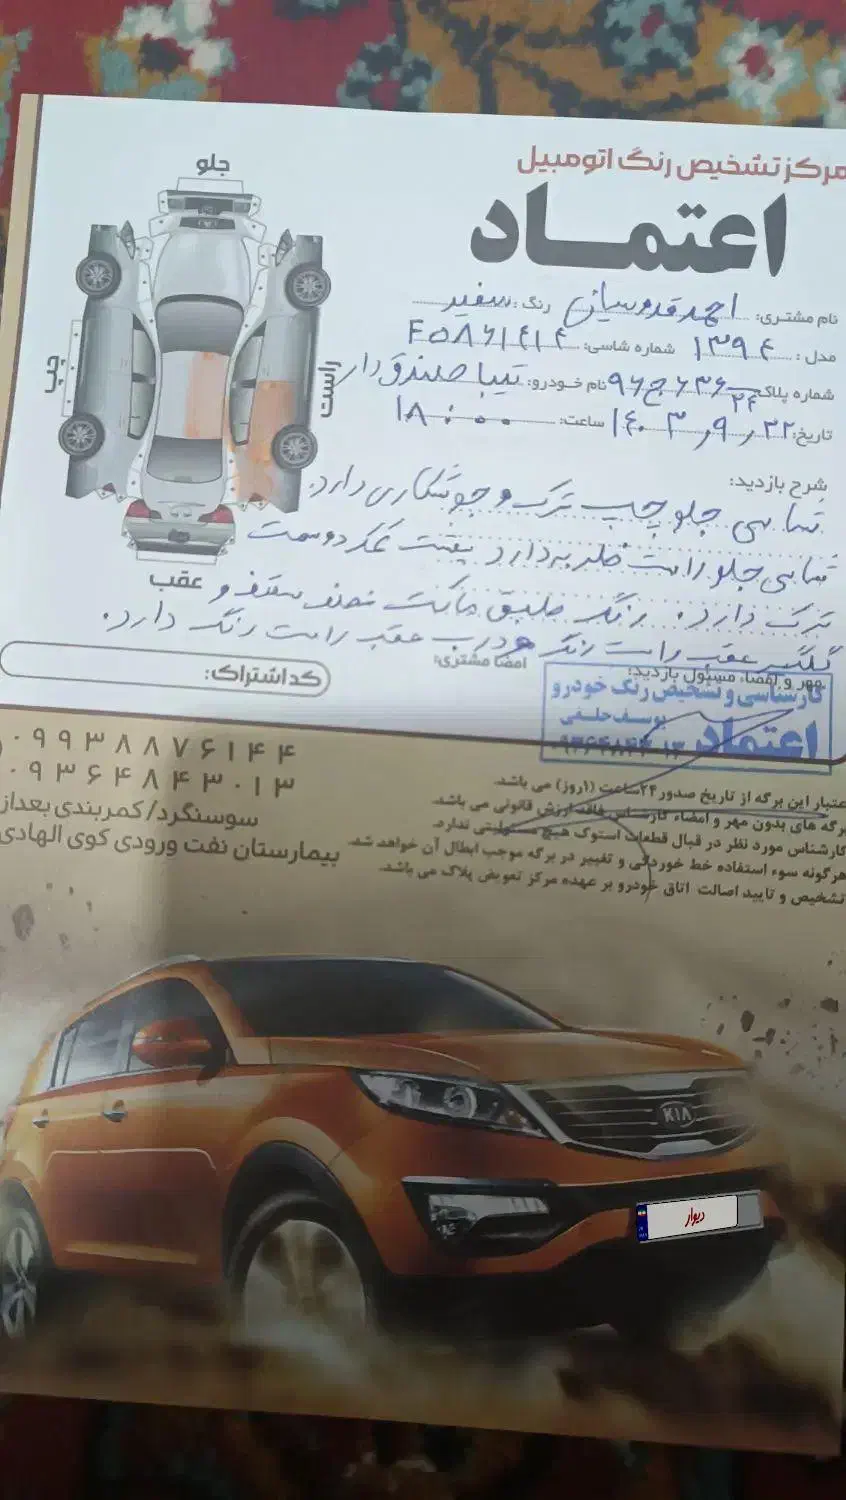 مرکز تشخیص رنگ اتومبیل
اعتمـاد
جلو
چپ
راست
عقب
نام مشتری: احمد قدوسیان رنگ: سفید
مدل: ۱۳۹۴ شماره شاسی: F۵۸۶۱۴۱۴
شماره پلاک: ۶۳۶ج۹۶ ۲۴ نام خودرو: تیبا صندوق دار
تاریخ: ۱۴۰۳٫۹٫۲۲ ساعت: ۱۸:۰۰
شرح بازدید:
شاسی جلو چپ ترک و جوشکاری دارد.
شاسی جلو راست ضربه دارد پشت کمک دو سمت
ترک دارد. رنگ طبق ماکت نصف سقف و
گلگیر عقب راست رنگ درب عقب راست رنگ دارد.
امضا مشتری:
مهر و امضاء مسئول بازدید:
کد اشتراک:
کارشناسی و تشخیص رنگ خودرو
یوسف حلفی
اعتماد
۰۹۳۶۴۸۴۳۰۱۳
۰۹۹۳۸۸۷۶۱۴۴
۰۹۳۶۴۸۴۳۰۱۳
سوسنگرد/ کمربندی بعداز
بیمارستان نفت ورودی کوی الهادی
اعتبار این برگه از تاریخ صدور ۲۴ ساعت (۱روز) می باشد.
برگه های بدون مهر و امضاء کارشناس فاقد ارزش قانونی می باشد.
کارشناس مورد نظر در قبال قطعات استوک هیچ مسئولیتی ندارد.
هرگونه سوء استفاده خط خوردگی و تغییر در برگه موجب ابطال آن خواهد شد.
تشخیص و تایید اصالت اتاق خودرو بر عهده مرکز تعویض پلاک می باشد.
KIA
دیوار